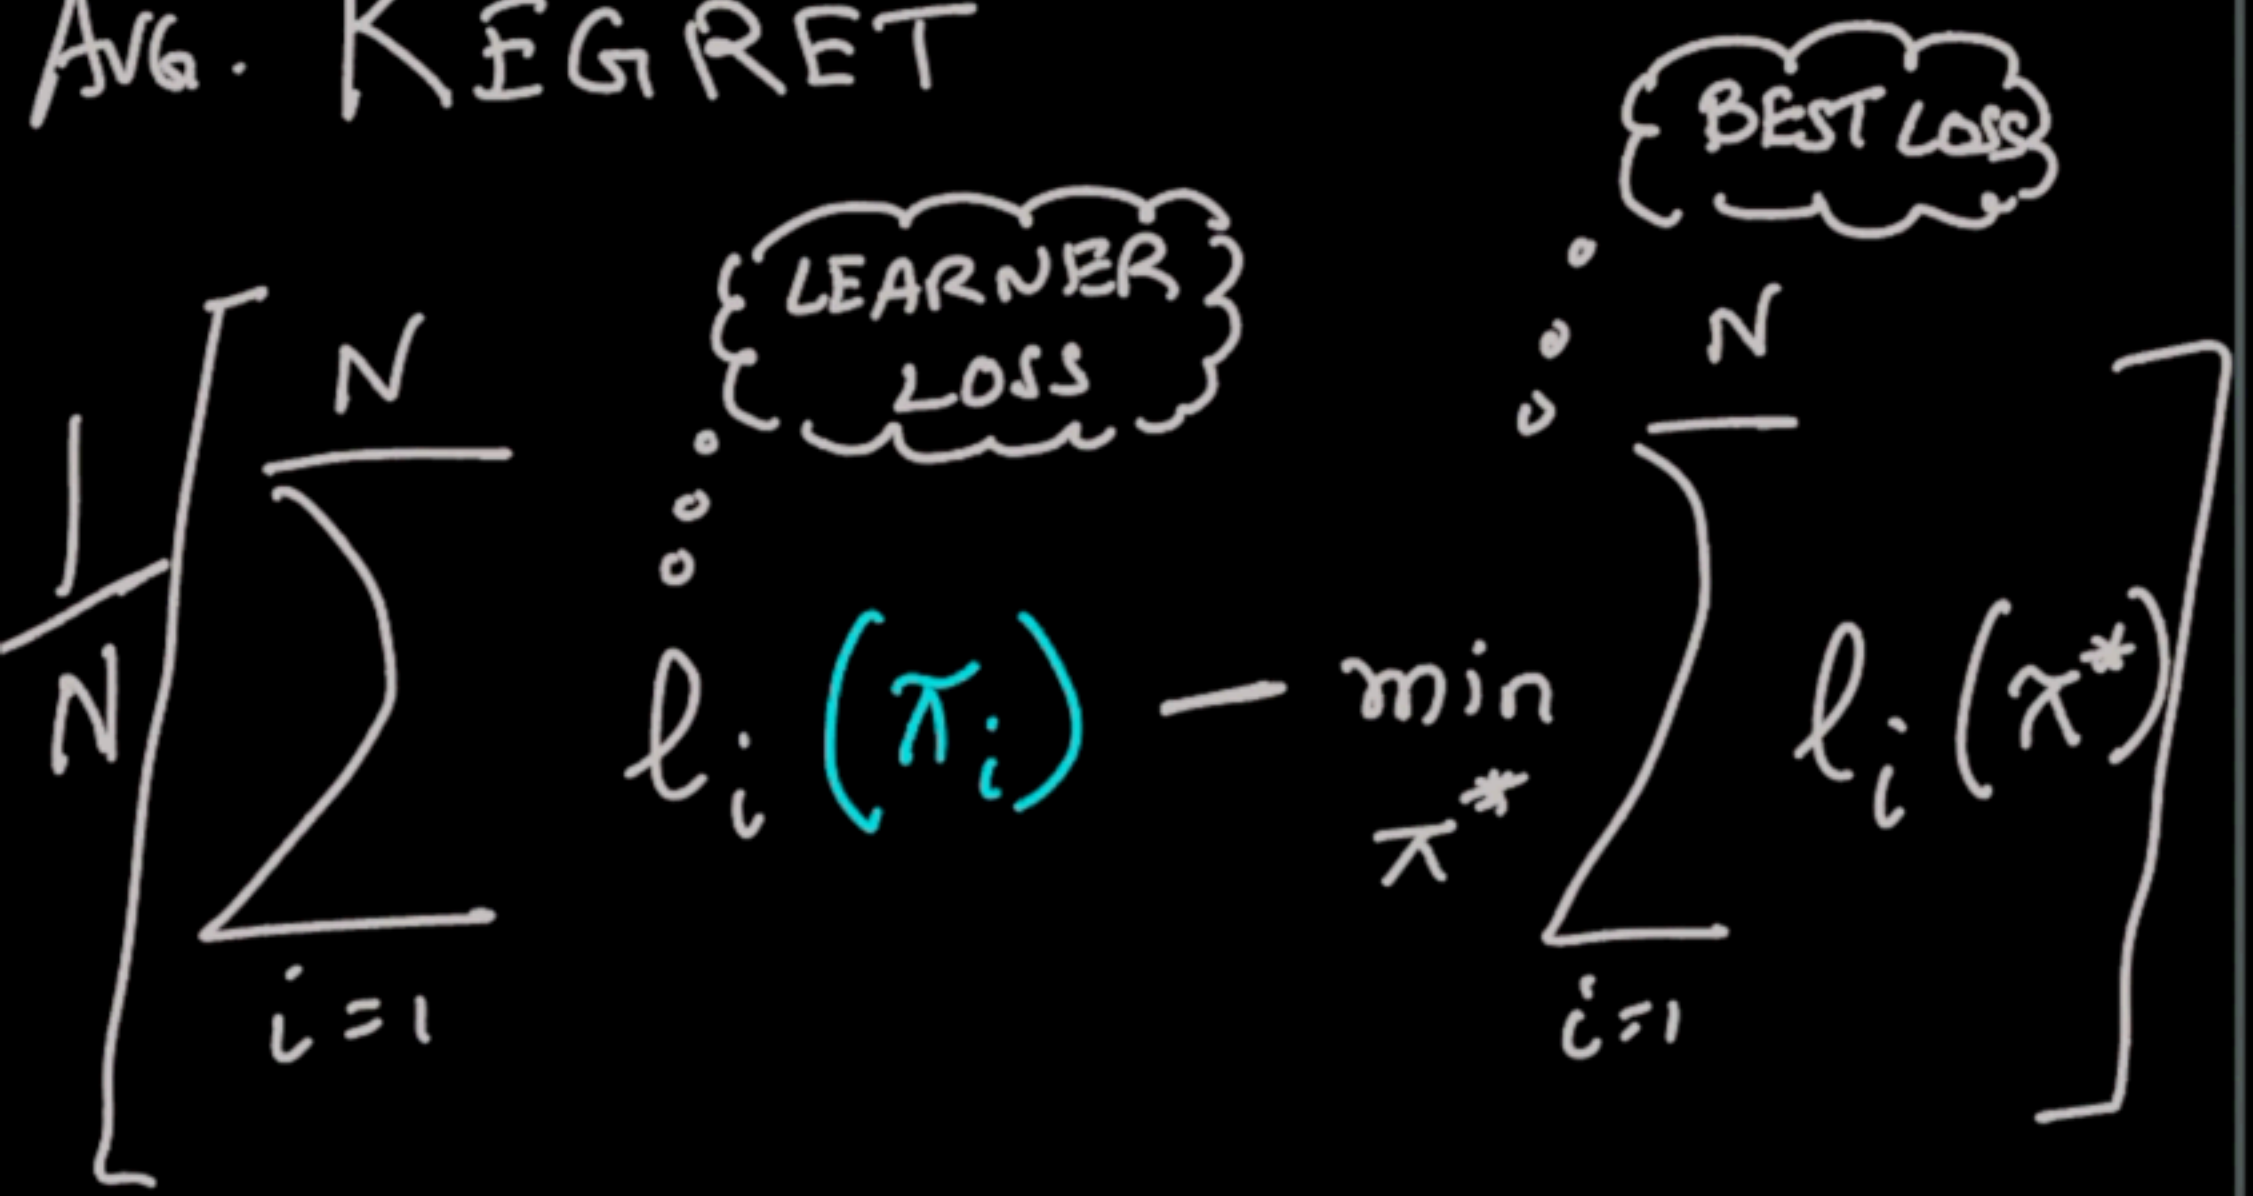 AVG. REGRET
BEST LOSS
LEARNER
LOSS
1/N [ ∑_{i=1}^{N} ℓ_i(π_i) − min_{π*} ∑_{i=1}^{N} ℓ_i(π*) ]